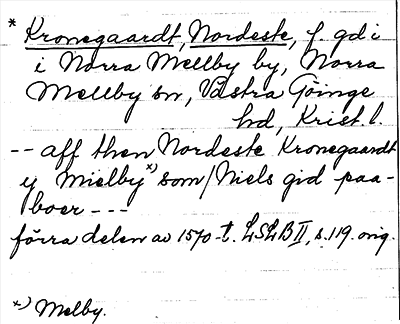 * Kronegaardt, Nordeste, f. gd i
i Norra Mellby by, Norra
Mellby sn, Västra Göinge
hd, Krist. l.
-- aff then Nordeste Kronegaardt
y Mielby x) som Niels gid paa-
boer ---
förra delen av 1570-t. LSLB II, s. 119. orig.
x) Melby.